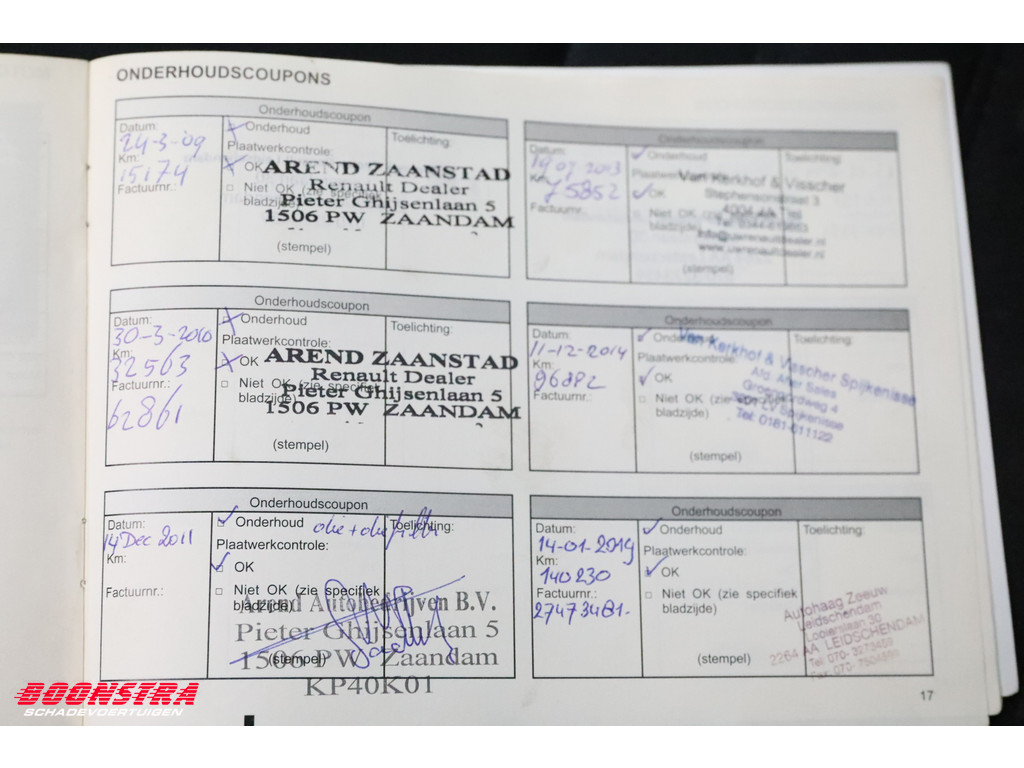 ONDERHOUDSCOUPONS
Onderhoudscoupon
Datum:
24-3-09
Km:
15174
Factuurnr.:
Onderhoud
Plaatwerkcontrole:
OK
Niet OK (zie specifiek
bladzijde)
Toelichting:
AREND ZAANSTAD
Renault Dealer
Pieter Ghijsenlaan 5
1506 PW ZAANDAM
(stempel)
Onderhoudscoupon
Datum:
30-3-2010
Km:
32563
Factuurnr.:
62861
Onderhoud
Plaatwerkcontrole:
OK
Niet OK (zie specifiek
bladzijde)
Toelichting:
AREND ZAANSTAD
Renault Dealer
Pieter Ghijsenlaan 5
1506 PW ZAANDAM
(stempel)
Onderhoudscoupon
Datum:
14 Dec 2011
Km:
Factuurnr.:
Onderhoud
olie + olie filter
Plaatwerkcontrole:
OK
Niet OK (zie specifiek
bladzijde)
Toelichting:
Arend Autobedrijven B.V.
Pieter Ghijsenlaan 5
1506 PW Zaandam
KP40K01
(stempel)
Onderhoudscoupon
Datum:
19 07 2013
Km:
75852
Factuurnr.:
Onderhoud
Plaatwerkcontrole:
OK
Niet OK (zie specifiek
bladzijde)
Toelichting:
Van Kerkhof & Visscher
Stephensonstraat 3
4004 Tiel
www.uwrenaultdealer.nl
(stempel)
Onderhoudscoupon
Datum:
11-12-2014
Km:
Factuurnr.:
Onderhoud
Plaatwerkcontrole:
OK
Niet OK (zie specifiek
bladzijde)
Toelichting:
Van Kerkhof & Visscher Spijkenisse
Afd. After Sales
Groenoordweg 4
LV Spijkenisse
Tel: 0181-611122
(stempel)
Onderhoudscoupon
Datum:
14-01-2019
Km:
140230
Factuurnr.:
27473481.
Onderhoud
Plaatwerkcontrole:
OK
Niet OK (zie specifiek
bladzijde)
Toelichting:
Autohaag Zeeuw
Leidschendam
Looierslaan 30
2264 AA LEIDSCHENDAM
Tel: 070-3273459
(stempel)
17
BOONSTRA
SCHADEVOERTUIGEN